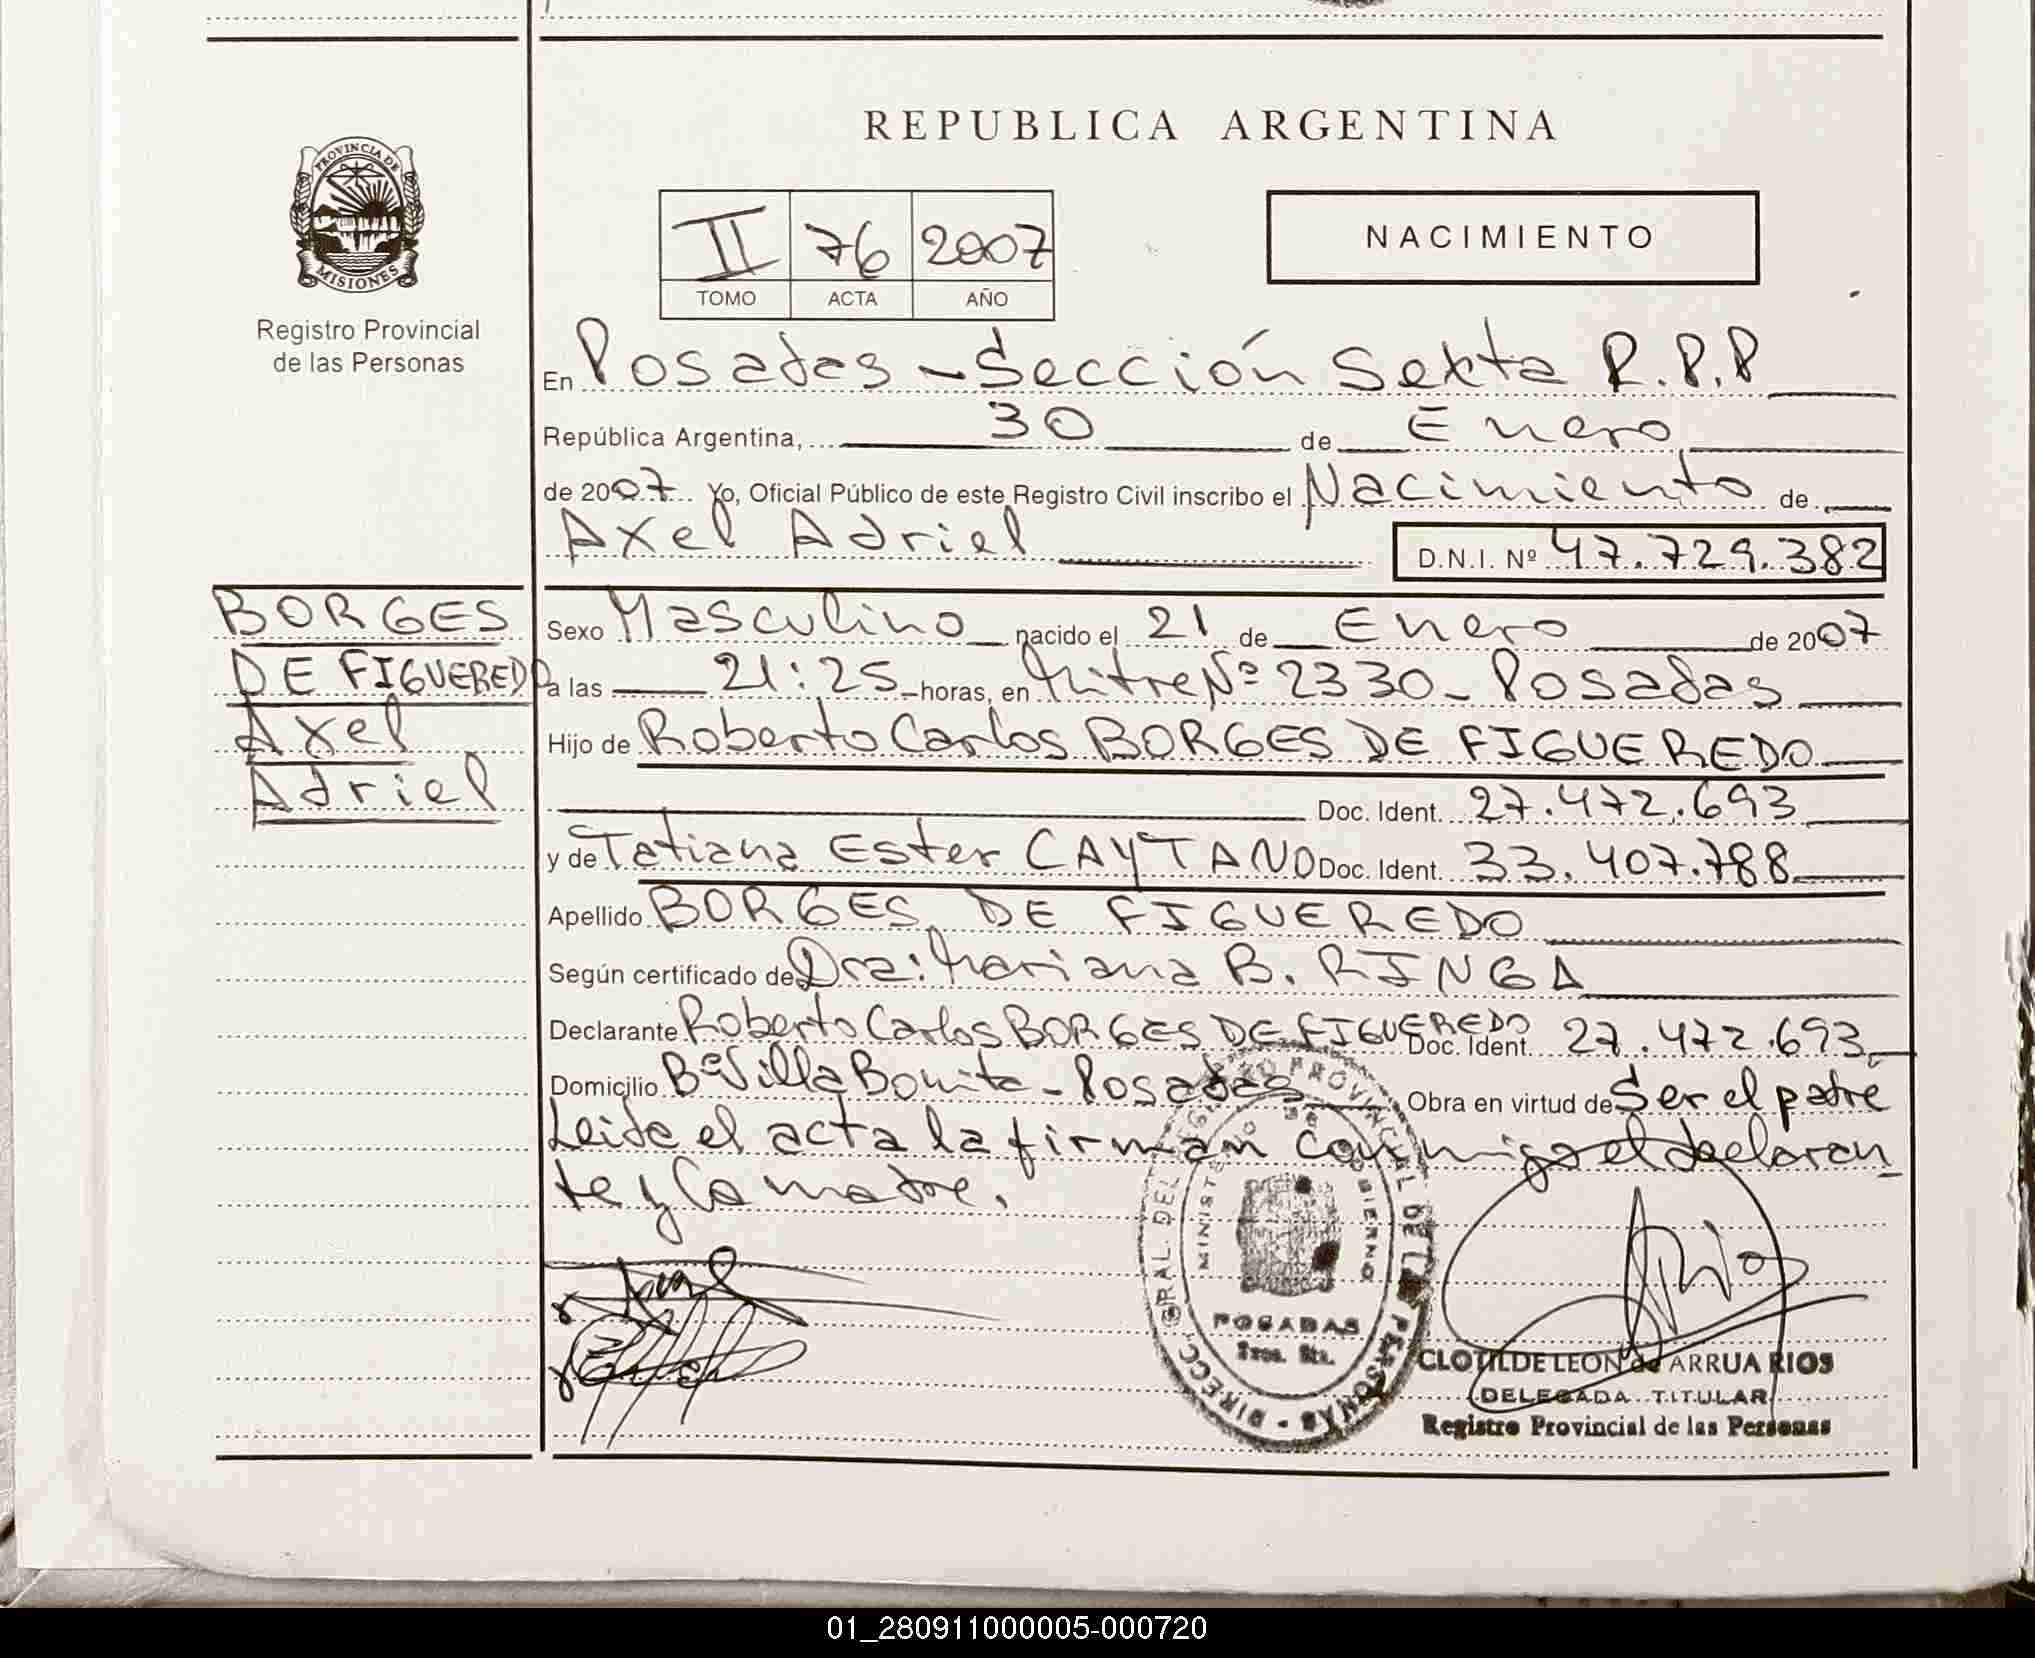 REPUBLICA ARGENTINA
PROVINCIA DE
MISIONES
Registro Provincial
de las Personas
II 76 2007
TOMO ACTA AÑO
NACIMIENTO
En Posadas - Sección Sexta R.P.P
República Argentina, 30 de Enero
de 2007. Yo, Oficial Público de este Registro Civil inscribo el Nacimiento de
Axel Adriel
D.N.I. Nº 47.729.382
BORGES
DE FIGUEREDO
Axel
Adriel
Sexo Masculino nacido el 21 de Enero de 2007
a las 21:25 horas, en Mitre Nº 2330 - Posadas
Hijo de Roberto Carlos BORGES DE FIGUEREDO
Doc. Ident. 27.472.693
y de Tatiana Ester CAYTANO Doc. Ident. 33.407.788
Apellido BORGES DE FIGUEREDO
Según certificado de Dra: Mariana B. RINGA
Declarante Roberto Carlos BORGES DE FIGUEREDO Doc. Ident. 27.472.693
Domicilio Bº Villa Bonita - Posadas Obra en virtud de Ser el padre
Leida el acta la firman conmigo el declaran
te y la madre.
DIRECC. GRAL. DEL REGISTRO PROVINCIAL DE LAS PERSONAS
MINISTERIO DE GOBIERNO
POSADAS
CLOTILDE LEON de ARRUA RIOS
DELEGADA TITULAR
Registro Provincial de las Personas
01_280911000005-000720